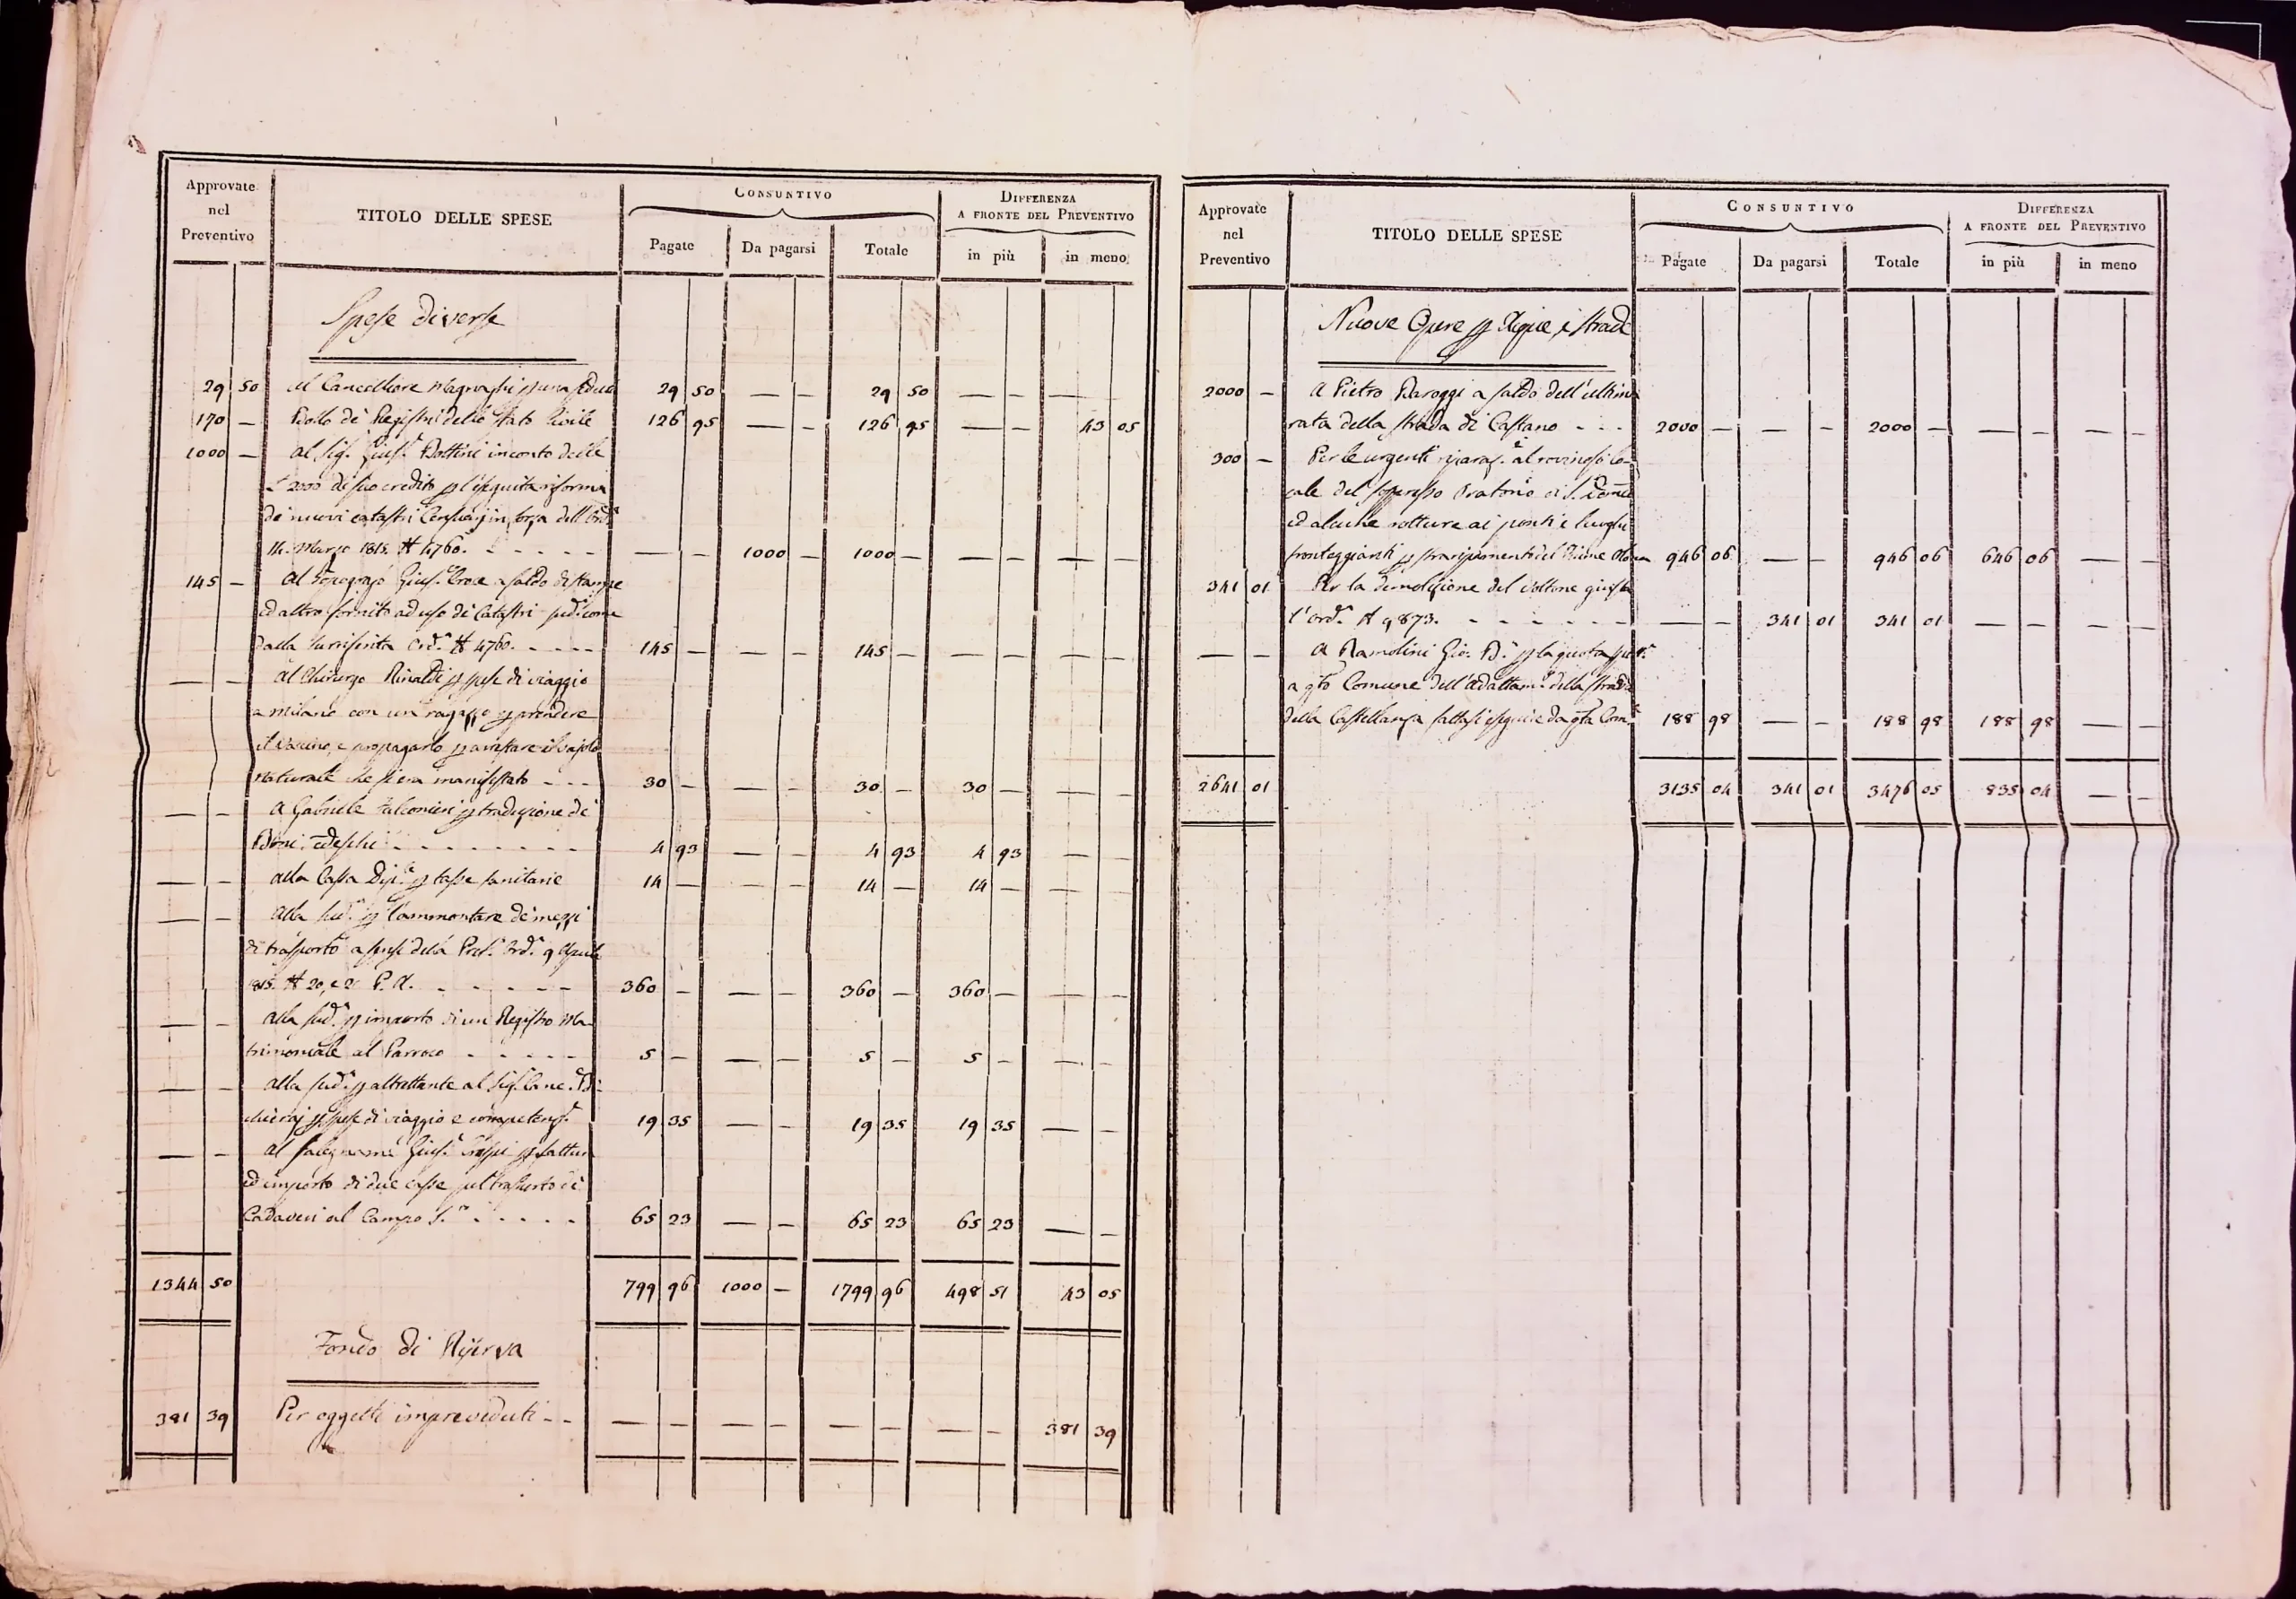 Approvate nel Preventivo
TITOLO DELLE SPESE
CONSUNTIVO
DIFFERENZA A FRONTE DEL PREVENTIVO
Pagate Da pagarsi Totale in più in meno
Spese diverse
29 50 Al Cancelliere Magnaghi 29 50 — — 29 50 — — — —
170 — Bollo de' Registri dello Stato Civile 126 95 — — 126 95 — — 43 05
1000 — Al Sig. Gius.e Bottini in conto delle
£ 2000 di suo credito l'eseguita riforma
de' nuovi catastri in forza dell' Ord.a
14. Marzo 1815. N 4760. — — 1000 — 1000 — — — — —
145 — Al Topografo Gius.e Croce a saldo di stampe
ed altro fornito ad uso de' Catastri sud.i come
dalla surriferita Ord.a N 4760. 145 — — — 145 — — — — —
— — Al Chirurgo Rinaldi spese di viaggio
a Milano con un ragazzo prendere
il vaccino, e propagarlo arrestare il vajolo
naturale che si era manifestato 30 — — — 30 — 30 — — —
— — A Gabriele Falconieri traduzione de'
4 93 — — 4 93 4 93 — —
— — Alla Cassa tasse sanitarie 14 — — — 14 — 14 — — —
— — Alla Sud.a l'ammontare de' mezzi
di trasporto a spese della Pref. Ord.a 9 Aprile
1815. N 20, e 21 P. 360 — — — 360 — 360 — — —
— — Alla Sud.a importo di un Registro Ma-
trimoniale al Parroco 5 — — — 5 — 5 — — —
— — Alla Sud.a altrettante al Sig. Canc.
spese di viaggio e competenz.e 19 35 — — 19 35 19 35 — —
— — Al falegname Gius.e Crespi fattura
ed importo di due casse pel trasporto de'
Cadaveri al Campo S.to 65 23 — — 65 23 65 23 — —
1344 50 799 96 1000 — 1799 96 498 51 43 05
Fondo di Riserva
381 39 Per oggetti impreveduti — — — — — — — — 381 39
Approvate nel Preventivo
TITOLO DELLE SPESE
CONSUNTIVO
DIFFERENZA A FRONTE DEL PREVENTIVO
Pagate Da pagarsi Totale in più in meno
Nuove Opere Acque, e Strade
2000 — A Pietro Baroggi a saldo dell'ultima
rata della strada di Castano 2000 — — — 2000 — — — — —
300 — Per le urgenti riparaz.i al rovinoso lo-
cale del soppresso Oratorio di S.
ed alcune rotture ai ponti e luoghi
fronteggianti straripamenti del Fiume Olona 946 06 — — 946 06 646 06 — —
341 01 Per la demolizione del Voltone giusta
l'ord.a N 9873. — — 341 01 341 01 — — — —
— — A Ramolini Gio. B.a la quota
a q.to Comune dell'adattam.o della strada
della Castellanza fattasi eseguire da q.ta Com.e 188 98 — — 188 98 188 98 — —
2641 01 3135 04 341 01 3476 05 835 04 — —